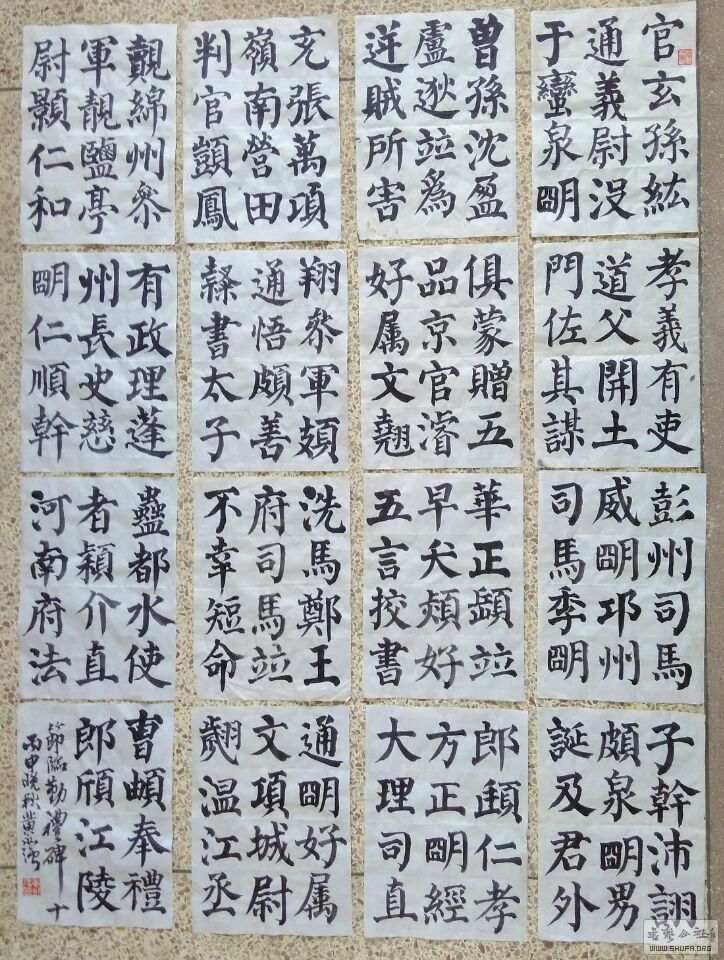 官玄孫紘
通義尉没
于蠻泉明
孝義有吏
道父開土
門佐其謀
彭州司馬
威明邛州
司馬季明
子幹沛詡
頗泉明男
誕及君外
曾孫沈盈
盧逖竝爲
逆賊所害
俱蒙贈五
品京官濬
好属文翹
華正頤竝
早夭熲好
五言挍書
郎頲仁孝
方正明經
大理司直
充張萬頃
嶺南營田
判官顗鳳
翔參軍頗
通悟頗善
隸書太子
洗馬鄭王
府司馬竝
不幸短命
通明好属
文項城尉
翽温江丞
覿綿州參
軍靚鹽亭
尉顥仁和
有政理蓬
州長史慈
明仁順幹
蠱都水使
者穎介直
河南府法
曹頔奉禮
郎頎江陵
節臨勤禮碑 十
丙申晚秋黄
WWW.SHUFA.ORG